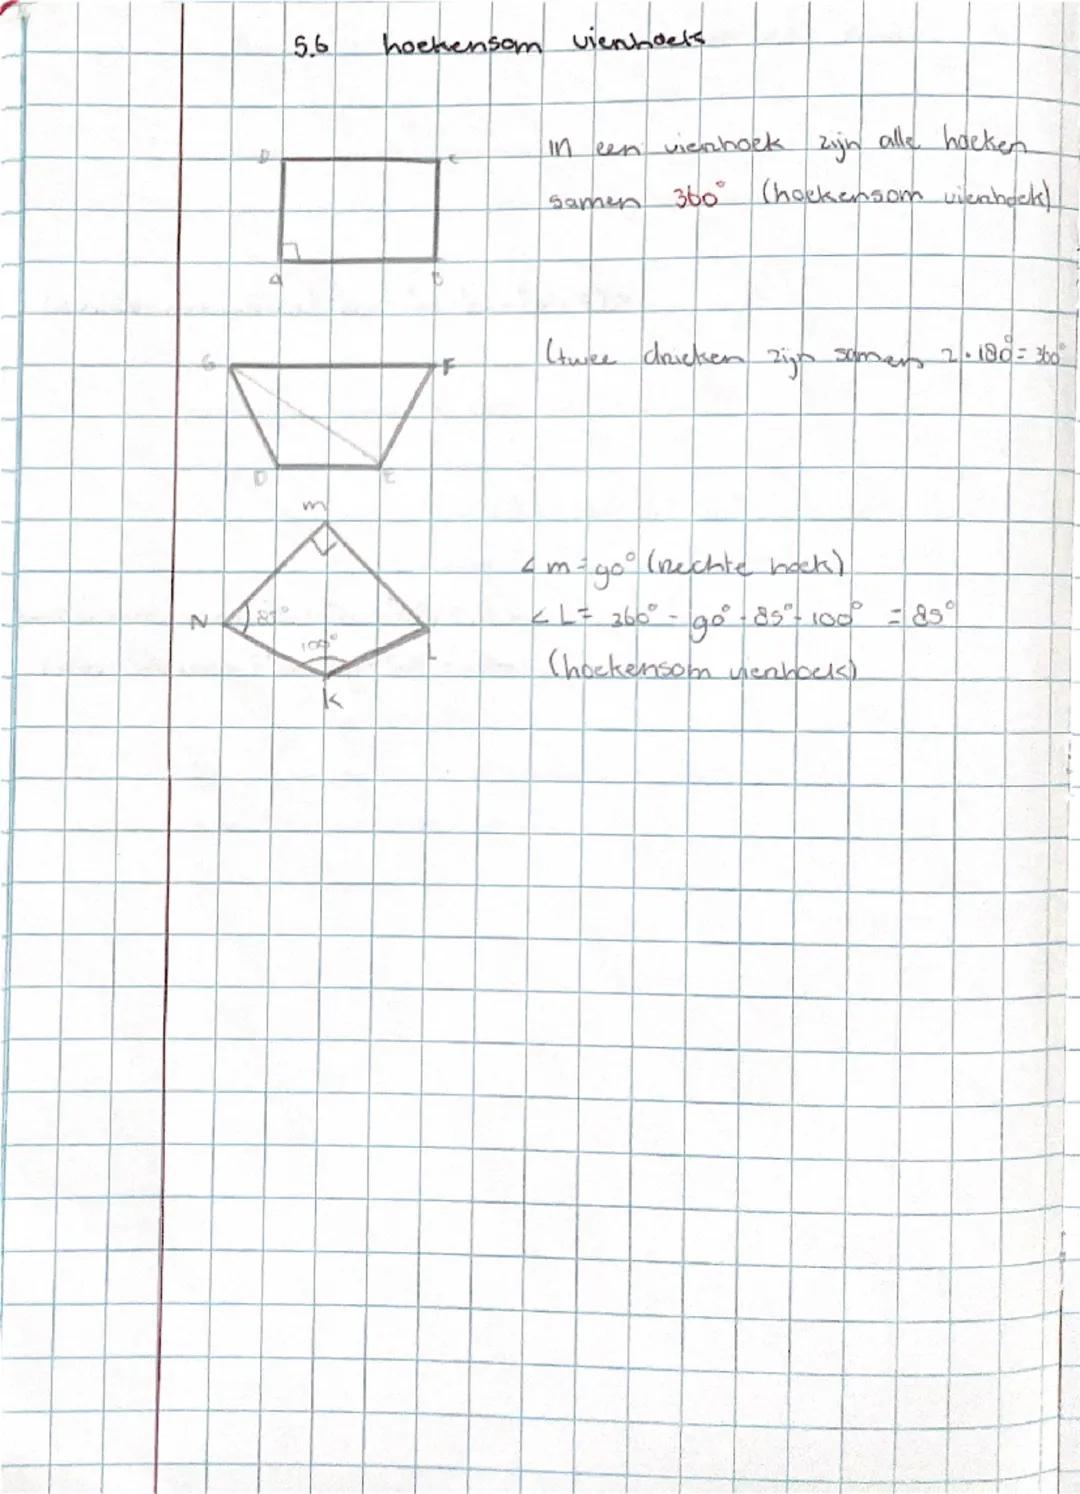 5.6 hoekensom vierhoek
D C
In een vierhoek zijn alle hoeken
samen 360° (hoekensom vierhoek)
A B
G F
(twee drieken zijn samen 2·180°=360°
D E
M
∠M=90° (rechte hoek)
N 85°
∠L= 360° - 90° - 85° - 100° = 85°
100°
L
(hoekensom vierhoek)
K